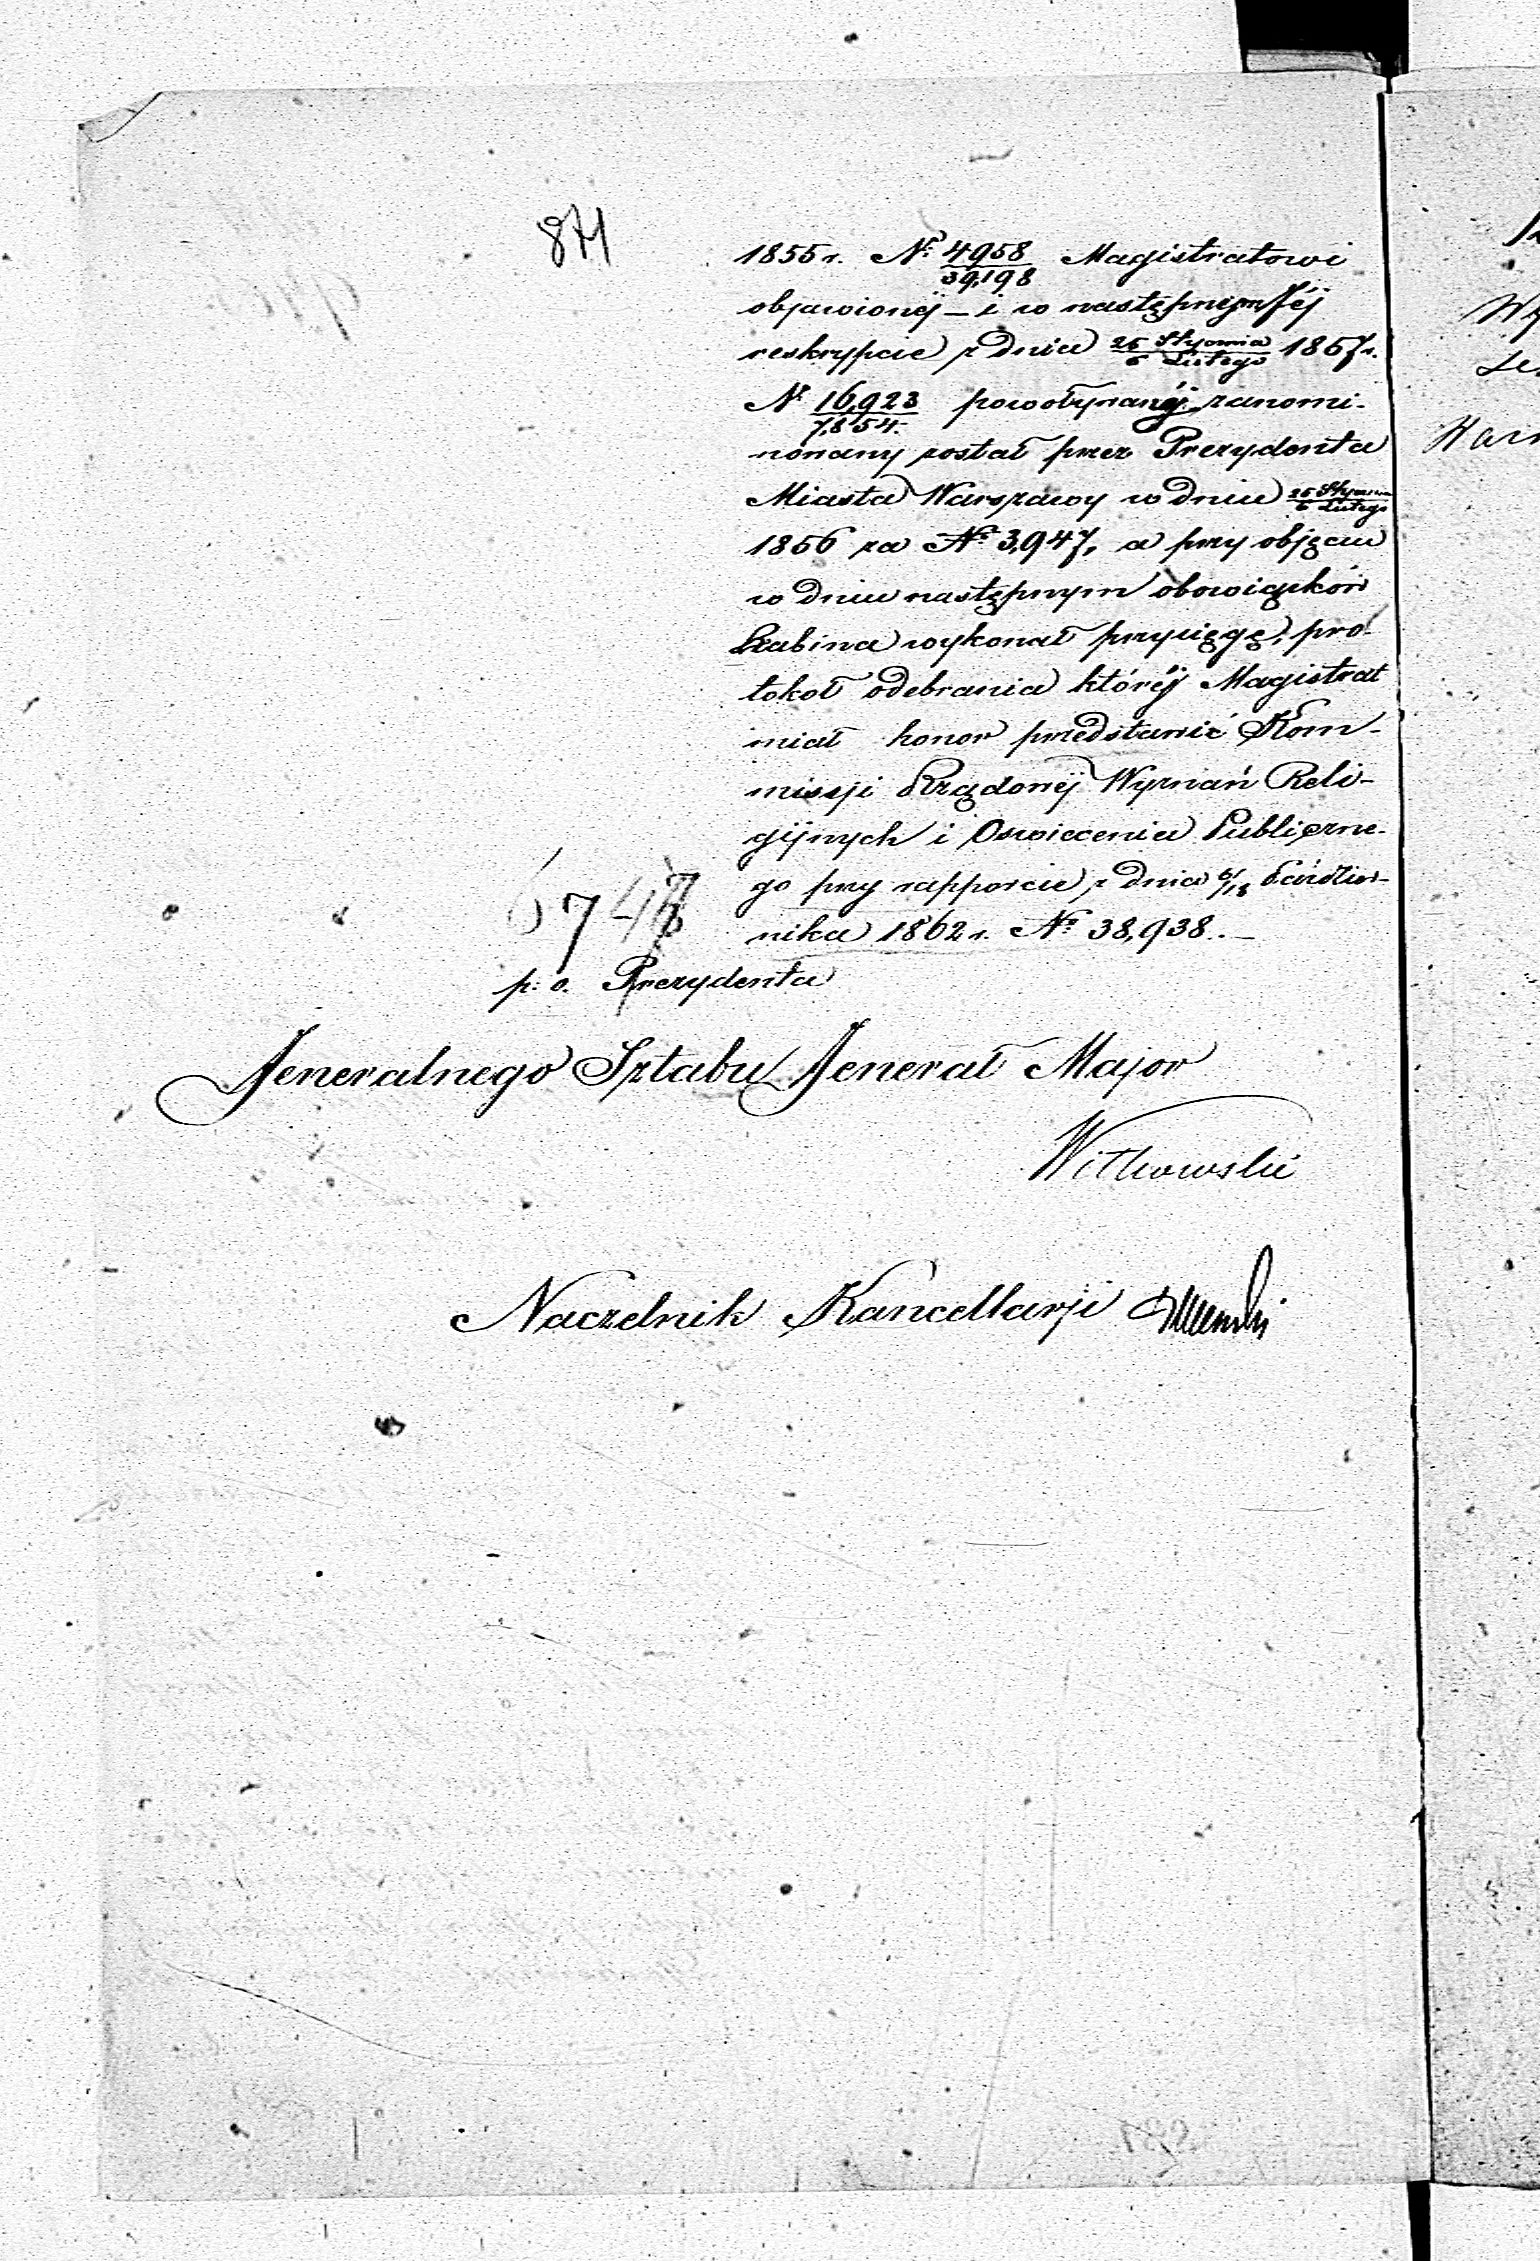 871
1855 r. Nr 4958/39,198 Magistratowi
objawionéj – i w następnym Jéj
reskrypcie z dnia 25 Stycznia/6 Lutego 1857 r.
Nr 16,923/7,854. powoływanéj zanomi-
nowany został przez Prezydenta
Miasta Warszawy w dniu 25 Stycznia/6 Lutego
1856 za Nr 3,947, a przy objęciu
w dniu następnym obowiązków
Rabina wykonał przysięgę, pro-
tokół odebrania któréj Magistrat
miał honor przedstawić Kom-
missji Rządowéj Wyznań Reli-
gijnych i Oswiecenia Publiczne-
go przy rapporcie z dnia 6/18 Paździer-
nika 1862 r. Nr 38,938. —
p. o. Prezydenta
Jeneralnego Sztabu Jenerał Major
Witkowski
Naczelnik Kancellarji